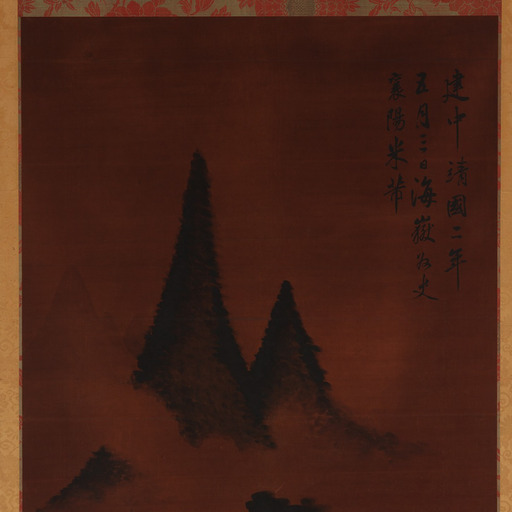 建中靖國二年
五月三日海嶽外史
襄陽米芾